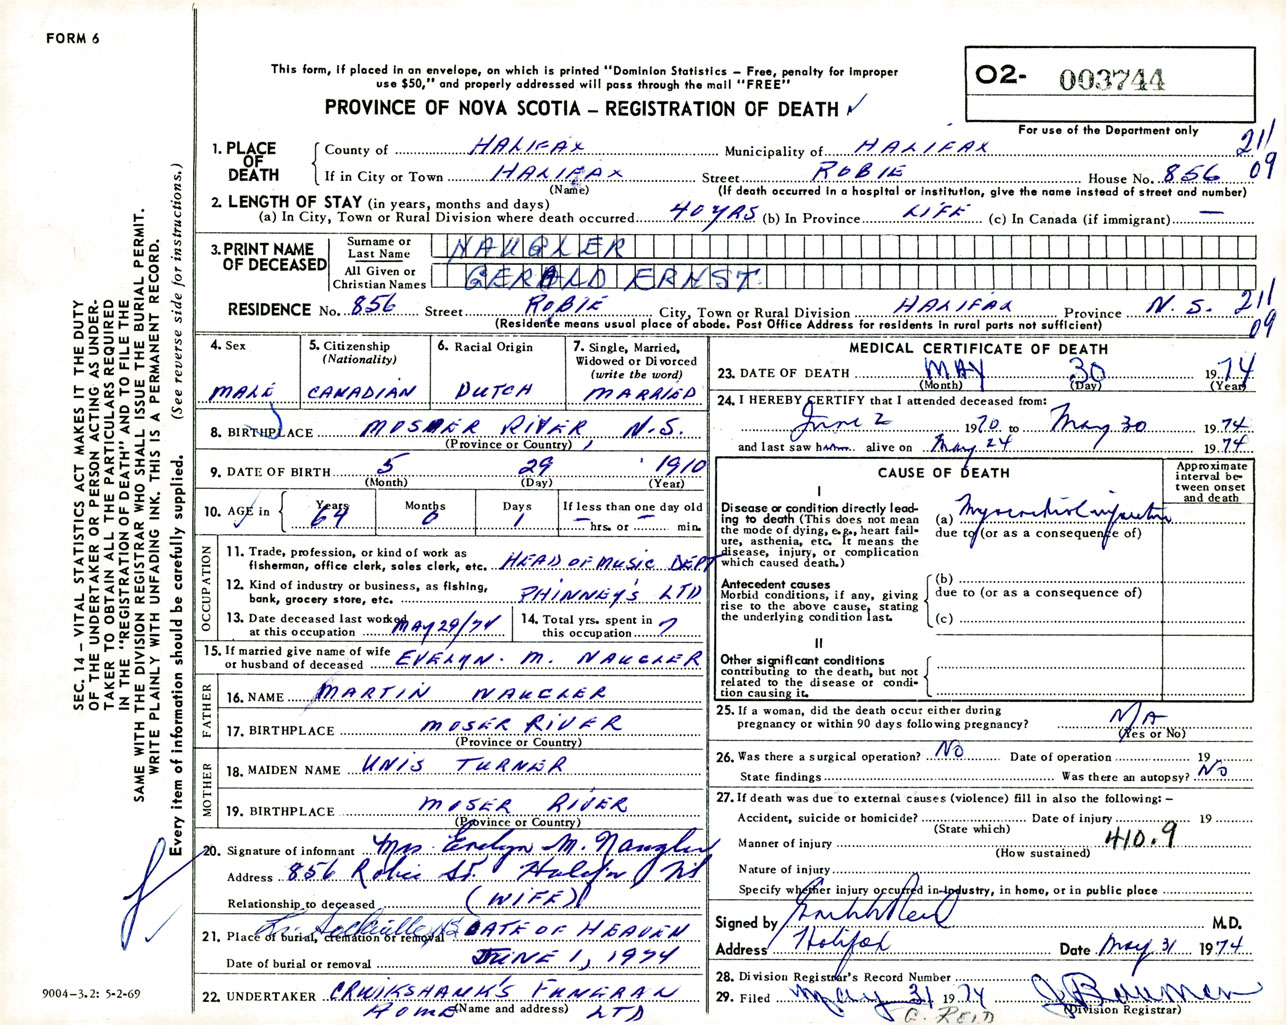 FORM 6
This form, if placed in an envelope, on which is printed "Dominion Statistics – Free, penalty for improper
use $50," and properly addressed will pass through the mail "FREE"
PROVINCE OF NOVA SCOTIA – REGISTRATION OF DEATH ✓
O2- 003744
For use of the Department only
1. PLACE OF DEATH
County of HALIFAX Municipality of HALIFAX 211
If in City or Town HALIFAX Street ROBIE House No. 856 09
(Name) (If death occurred in a hospital or institution, give the name instead of street and number)
2. LENGTH OF STAY (in years, months and days)
(a) In City, Town or Rural Division where death occurred 40 YRS (b) In Province LIFE (c) In Canada (if immigrant) —
3. PRINT NAME OF DECEASED
Surname or Last Name NAUGLER
All Given or Christian Names GERALD ERNST
RESIDENCE No. 856 Street ROBIE City, Town or Rural Division HALIFAX Province N.S. 211
(Residence means usual place of abode. Post Office Address for residents in rural parts not sufficient) 09
4. Sex MALE
5. Citizenship (Nationality) CANADIAN
6. Racial Origin DUTCH
7. Single, Married, Widowed or Divorced (write the word) MARRIED
8. BIRTHPLACE MOSHER RIVER, N.S.
(Province or Country)
9. DATE OF BIRTH 5 29 1910
(Month) (Day) (Year)
10. AGE in Years 64 Months 0 Days 1 If less than one day old — hrs. or — min.
OCCUPATION
11. Trade, profession, or kind of work as
fisherman, office clerk, sales clerk, etc. HEAD OF MUSIC DEPT
12. Kind of industry or business, as fishing,
bank, grocery store, etc. PHINNEY'S LTD
13. Date deceased last worked
at this occupation MAY 29/74
14. Total yrs. spent in
this occupation 7
15. If married give name of wife
or husband of deceased EVELYN. M. NAUGLER
FATHER
16. NAME MARTIN NAUGLER
17. BIRTHPLACE MOSER RIVER
(Province or Country)
MOTHER
18. MAIDEN NAME UNIS TURNER
19. BIRTHPLACE MOSER RIVER
(Province or Country)
20. Signature of informant Mrs Evelyn M. Naugler
Address 856 Robie St. Halifax NS
Relationship to deceased (WIFE)
21. Place of burial, cremation or removal GATE OF HEAVEN
Date of burial or removal JUNE 1, 1974
22. UNDERTAKER CRUIKSHANK'S FUNERAL
HOME (Name and address) LTD
MEDICAL CERTIFICATE OF DEATH
23. DATE OF DEATH MAY 30 1974
(Month) (Day) (Year)
24. I HEREBY CERTIFY that I attended deceased from:
June 2 1970 to May 30 1974
and last saw h alive on May 24 1974
CAUSE OF DEATH
Approximate interval between onset and death
I
Disease or condition directly leading to death (This does not mean the mode of dying, e.g., heart failure, asthenia, etc. It means the disease, injury, or complication which caused death.)
(a) Myocardial infarction
due to (or as a consequence of)
Antecedent causes
Morbid conditions, if any, giving rise to the above cause, stating the underlying condition last.
(b)
due to (or as a consequence of)
(c)
II
Other significant conditions
contributing to the death, but not related to the disease or condition causing it.
25. If a woman, did the death occur either during
pregnancy or within 90 days following pregnancy? N/A
(Yes or No)
26. Was there a surgical operation? NO Date of operation 19
State findings Was there an autopsy? NO
27. If death was due to external causes (violence) fill in also the following: –
Accident, suicide or homicide? Date of injury 19
(State which)
Manner of injury 410.9
(How sustained)
Nature of injury
Specify whether injury occurred in industry, in home, or in public place
Signed by M.D.
Address Halifax Date May 31 1974
28. Division Registrar's Record Number
29. Filed May 31 1974
(Division Registrar)
G. REID
SEC. 14 – VITAL STATISTICS ACT MAKES IT THE DUTY
OF THE UNDERTAKER OR PERSON ACTING AS UNDER-
TAKER TO OBTAIN ALL THE PARTICULARS REQUIRED
IN THE "REGISTRATION OF DEATH" AND TO FILE THE
SAME WITH THE DIVISION REGISTRAR WHO SHALL ISSUE THE BURIAL PERMIT.
WRITE PLAINLY WITH UNFADING INK. THIS IS A PERMANENT RECORD.
Every item of information should be carefully supplied. (See reverse side for instructions.)
9004-3.2: 5-2-69